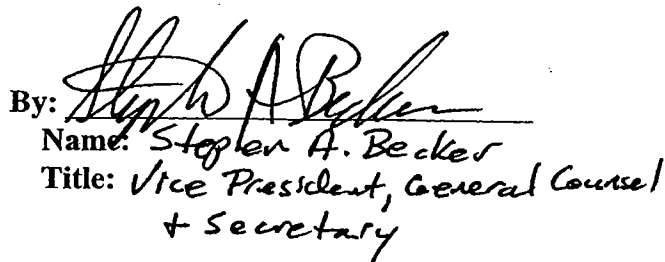 By: Stephen A Becker
Name: Stephen A. Becker
Title: Vice President, General Counsel
+ Secretary